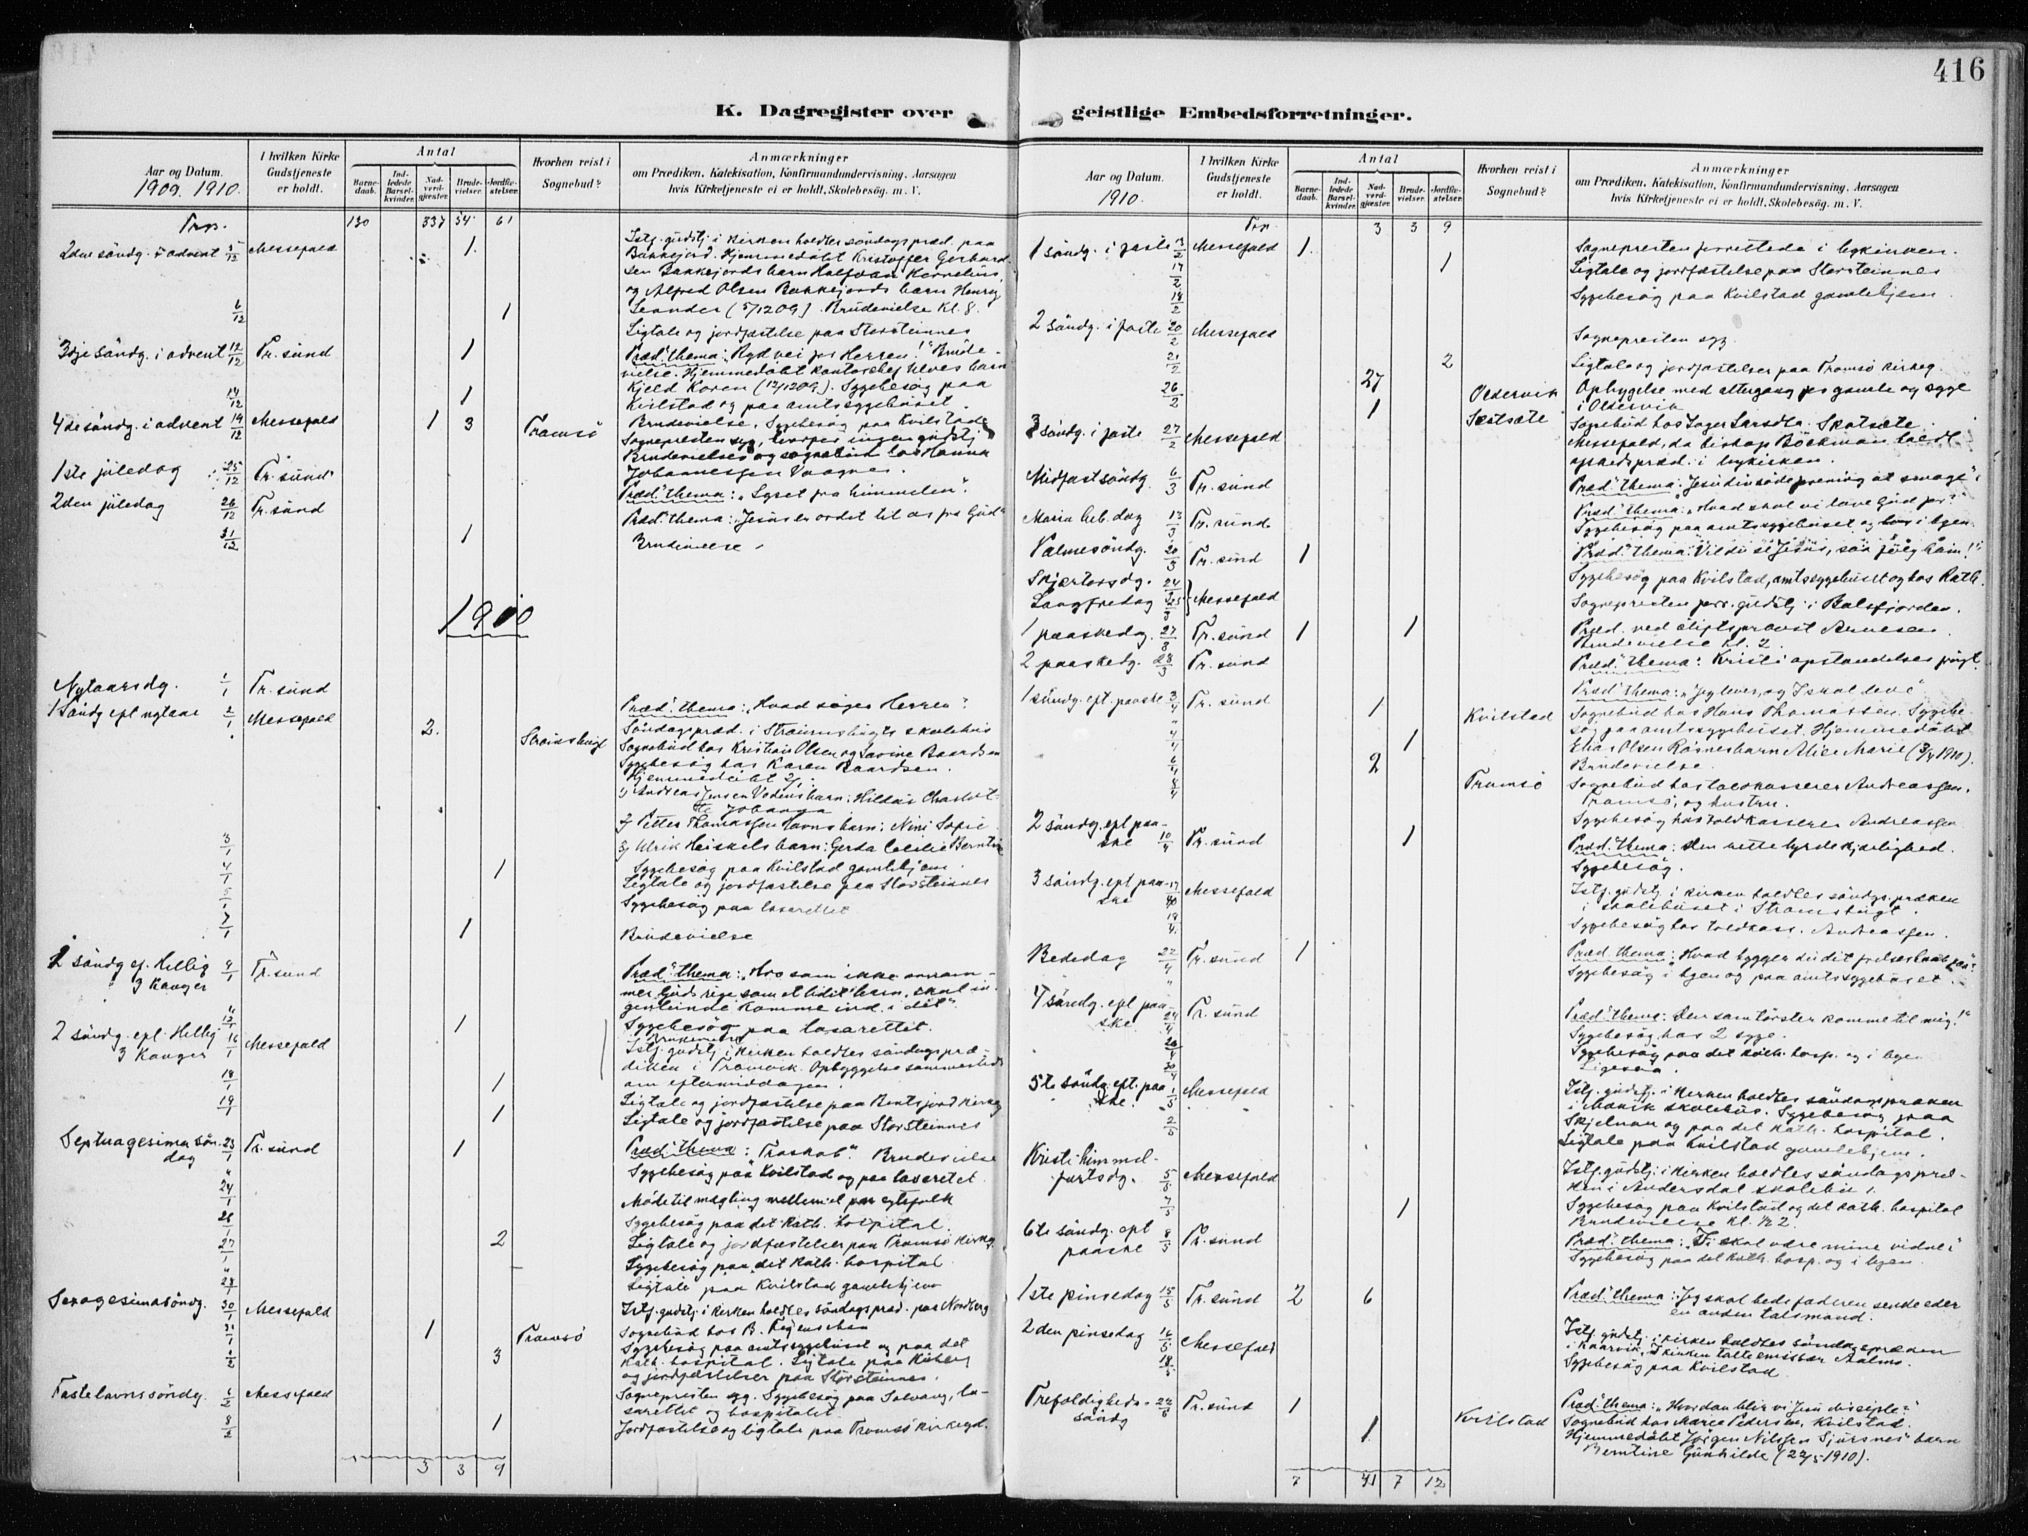 416
K. Dagregister over
geistlige Embedsforretninger.
Aar og Datum.
1909. 1910.
I hvilken Kirke
Gudstjeneste
er holdt.
Antal
Barne-
daab.
Ind-
ledede
Barsel-
kvinder.
Nad-
verd-
gjæster.
Brude-
vielser.
Jordfæ-
stelser.
Hvorhen reist i
Sognebud?
Anmærkninger
om Prædiken, Katekisation, Konfirmandundervisning, Aarsagen
hvis Kirketjeneste ei er holdt, Skolebesøg. m. V.
Trp. 130 337 54 61
2den søndg. i advent 5/12 Messefald 1 Istf. gudstj. i kirken holdtes søndagspræd. paa
Bakkejord. Hjemmedøbt Kristoffer Gerhard-
sen Bakkejords barn Halfdan Kornelius
og Alfred Olsen Bakkejords barn Henry
Leander (5/12 09). Brudevielse Kl. 8.
6/12 1 Ligtale og jordfæstelse paa Storsteinnes
3dje søndg. i advent 12/12 Tr. sund 1 Præd. thema: "Ryd vei for Herren!" Brude-
vielse. Hjemmedøbt
Kjeld Koren (12/12 09). Sygebesøg paa
Kvilstad og paa amtssygehuset.
14/12 1 Brudevielse, Sygebesøg paa Kvilstad
4de søndg. i advent 19/12 Messefald 1 3 Tromsø Sognepresten syg, hvorfor ingen gudstj.
Brudevielser og sognebud hos Hanna
Johannessen Vaagnes.
1ste juledag 25/12 Tr. sund Præd. thema: "Lyset fra himmelen".
2den juledag 26/12 Tr. sund Præd. thema: "Jesus er ordet til os fra Gud"
31/12 1 Brudevielse
1910
Nytaarsdg. 1/1 Tr. sund Præd. thema: "Hvad søges Herren?"
1 søndg ept nytaar 2/1 Messefald 2 Straumsbugt Søndagspræd. i Straumsbugts skolehus
Sognebud hos Kristian Olsen og Lavine Baardsen
Sygebesøg hos Karen Baardsen.
Hjemmedøbt 2/1:
1) Andreas Jensen barn: Hilda Charlot-
te Johanna
2) Petter Thomassen Havns barn: Nini Sofie
3) Ulrik Heiskels barn: Gerda Cecilie Berntine
3/1 Sygebesøg paa Kvilstad gamlehjem
4/1 1 Ligtale og jordfæstelse paa Storsteinnes
5/1 Sygebesøg paa lasarettet
7/1 1 Brudevielse
1 søndg ef. Hellig 3 Konger 9/1 Tr. sund Præd. thema: "Hvo som ikke annam-
mer Guds rige som et lidet barn, skal in-
genlunde komme ind i det".
Sygebesøg paa lasarettet.
12/1 1 Brudevielse
2 søndg. ept. Hellig 3 Konger 16/1 Messefald Istf. gudstj. i kirken holdtes søndagspræ-
diken i Tromvik. Opbyggelse sammesteds
om eftermiddagen.
18/1 1 Ligtale og jordfæstelse paa Bentsjord kirkeg
19/1 1 Ligtale og jordfæstelse paa Storsteinnes
Septuagesima søn-
dag 23/1 Tr. sund 1 Præd. thema: "Troskab". Brudevielse
" Sygebesøg paa Kvilstad og paa lasaretet
24/1 Møde til mægling mellem et par egtefolk
26/1 Sygebesøg paa det kath. hospital.
27/1 2 Ligtale og jordfæstelser paa Tromsø kirkeg.
" Sygebesøg paa det kath. hospital
28/1 Ligtale paa Kvilstad gamlehjem
Sexagesimasøndg. 30/1 Messefald Istf. gudstj. i kirken holdtes søndagspræd. paa Nordberg
31/1 1 Tromsø Sognebud hos B.
Sygebesøg paa amtssygehuset og paa det
1/2 3 kath. hospital. Ligtale paa
og jordfæstelser paa Storsteinnes.
Fastelavnssøndg. 6/2 Messefald Sognepresten syg. Sygebesøg paa Solvang, la-
sarettet og hospitalet.
8/2 1 Jordfæstelse og ligtale paa Tromsø kirkegd.
3 3 9
Aar og Datum.
1910.
I hvilken Kirke
Gudstjeneste
er holdt.
Antal
Barne-
daab.
Ind-
ledede
Barsel-
kvinder.
Nad-
verd-
gjæster.
Brude-
vielser.
Jordfæ-
stelser.
Hvorhen reist i
Sognebud?
Anmærkninger
om Prædiken, Katekisation, Konfirmandundervisning, Aarsagen
hvis Kirketjeneste ei er holdt, Skolebesøg. m. V.
Trp. 3 3 9
1 søndg. i faste 13/2 Messefald 1 Sognepresten forrettede i bykirken.
17/2 1 Ligtale og jordfæstelse paa Storsteinnes
18/2 Sygebesøg paa Kvilstad gamlehjem
2 søndg. i faste 20/2 Messefald Sognepresten syg.
21/2 2 Ligtale og jordfæstelser paa Tromsø kirkeg.
26/2 27 Oldervik Opbyggelse med altergang for gamle og syge
i Oldervik
3 søndg. i faste 27/2 Messefald 1 Skatsæte Sognebud hos Inger Larsdtr. Skatsæte.
Messefald, da biskop Böckman holdt
afskedspræd. i bykirken.
Midfastsøndg. 6/3 Tr. sund Præd. thema:
Maria beb. dag 13/3 Tr. sund Præd. thema: "Hvad skal vi love Gud for?"
Sygebesøg paa amtssygehuset og hos i byen.
Palmesøndg. 20/3 Tr. sund 1 Præd. thema: "Vil du se Jesus, saa følg ham!"
Sygebesøg paa Kvilstad, amtssygehuset og hos Rath.
Skjærtorsdg. 24/3
Langfredag 25/3 Messefald Sognepresten forr. gudstj. i Balsfjorden.
1 paaskedg. 27/3 Tr. sund 1 1 Præd. ved stiftsprovst Arnesen.
Brudevielse kl. 2.
2 paaskedg. 28/3 Tr. sund Præd. thema: Kristi opstandelses frugt.
1 søndg. ept. paaske 3/4 Tr. sund 1 Kvilstad Præd. thema: "Jeg lever, og I skal leve"
Sognebud hos Hans Thomassen. Sygebe-
søg paa amtssygehuset. Hjemmedøbt
Elias Olsen Røsnes barn Alice Marie (3/4 1910).
4/4 1 Brudevielse.
6/4 2 Tromsø Sognebud hos toldkasserer Andreassen.
Tromsø, og hustru.
8/4 Sygebesøg hos toldkasserer Andreassen
2 søndg. ept paa-
ske 10/4 Tr. sund 1 Præd. thema: Den rette hyrdekjærlighed.
Sygebesøg.
3 søndg. ept paa-
ske 17/4 Messefald Istf. gudstj. i kirken holdtes søndagspræken
i skolehuset i Stromsbugt.
19/4 Sygebesøg hos toldkass. Andreassen.
Bededag 22/4 Tr. sund 1 Præd. thema: Hvad bygger du dit frelseshaab paa?
" Sygebesøg i byen og paa amtssygehuset.
4 søndg. ept paa-
ske 24/4 Tr. sund Præd. thema: "Den som tørster komme til mig!"
Sygebesøg hos 2 syge.
26/4 Sygebesøg paa det kath. hosp. og i byen
30/4 Ligesaa.
5te søndg. ept. paa-
ske. 1/5 Messefald Istf. gudstj. i kirken holdtes søndagspræken
i skolehus. Sygebesøg paa
Skjelnan og paa det kath. hospital.
2/5 Ligtale paa Kvilstad gamlehjem.
Kristi himmel-
fartsdg. 5/5 Messefald Istf. gudstj. i kirken holdtes søndagspræ-
ken i Andersdal skolehus.
7/5 1 Sygebesøg paa Kvilstad og det kath. hospital
Brudevielse Kl. 1/2 2.
6te søndg. ept
paaske 8/5 Tr. sund Præd. thema: "I skal være mine vidne"
Sygebesøg paa det kath. hosp. og i byen.
1ste pinsedag 15/5 Tr. sund 2 6 Præd. thema: Jeg skal bede faderen sende eder
en anden talsmand.
2den pinsedag 16/5 Messefald Istf. gudstj. i kirken holdtes søndagspræken
i Kaarvik. I kirken talte emissær Aalmo.
18/5 Sygebesøg paa Kvilstad.
Trefoldigheds-
søndg 22/5 Tr. sund 1 Præd. thema: "Hvordan blir vi Jesu disciple?"
1 Kvilstad Sognebud hos Marie Pedersen, Kvilstad.
Hjemmedøbt Jørgen Nilssen Sjursnes' barn
Berntine Gunhilde (22/5 1910).
7 41 7 12